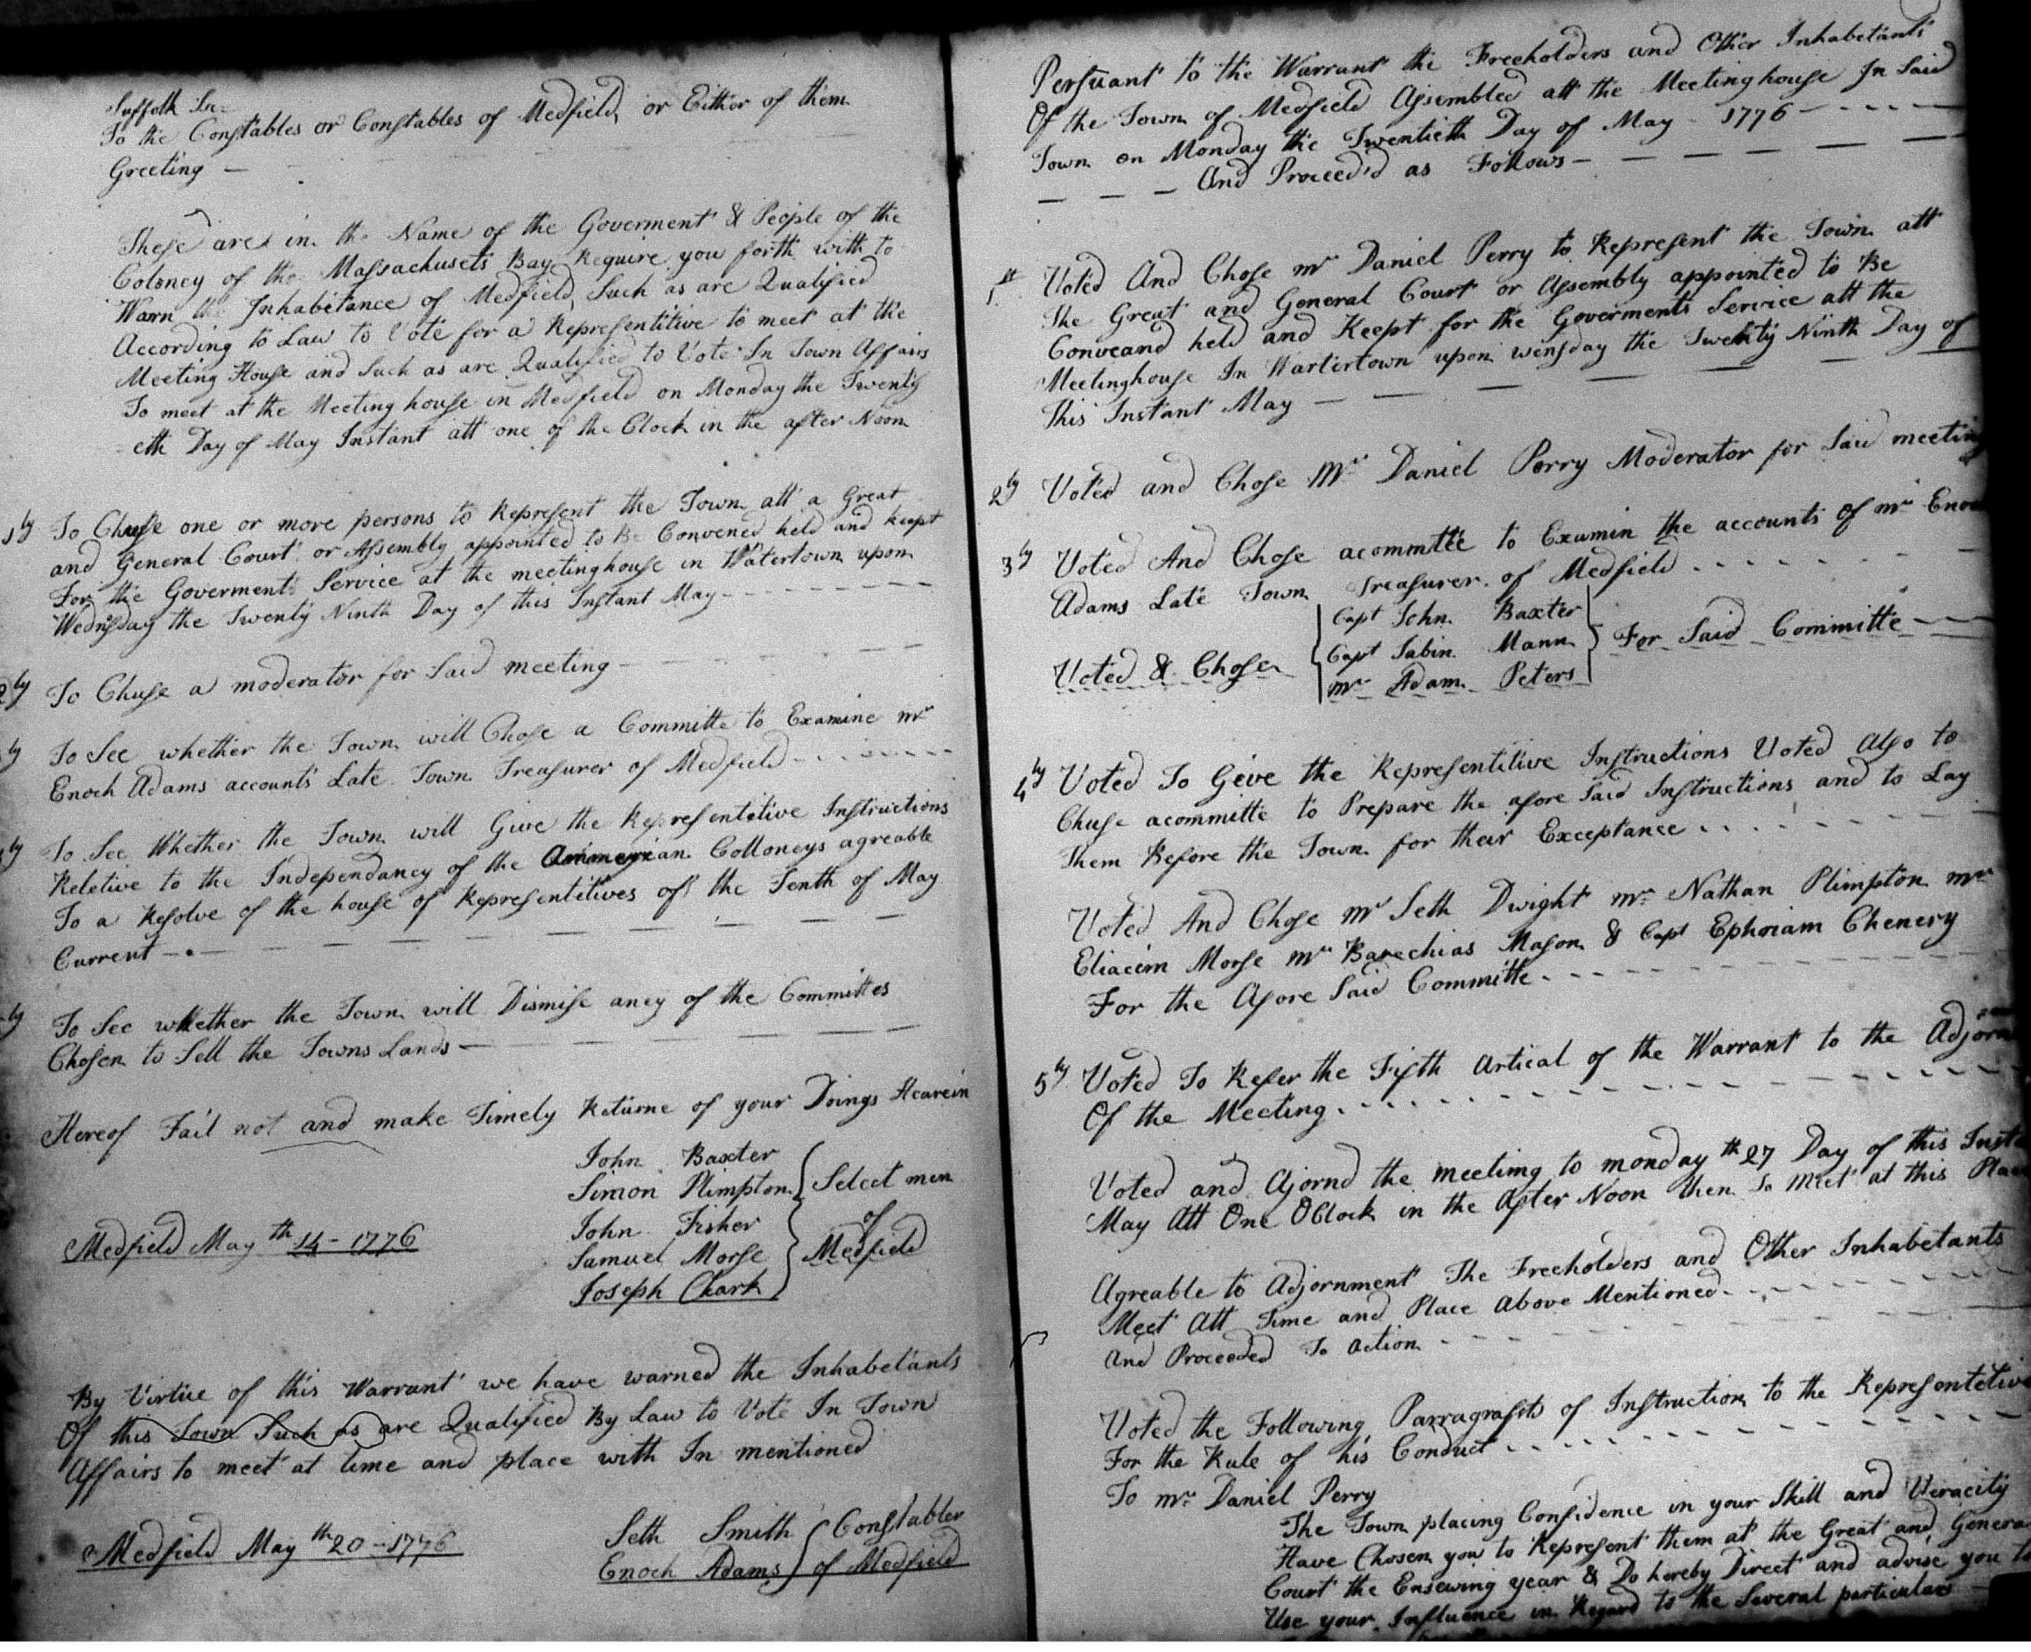 Suffolk Ss:
To the Constables or Constables of Medfield or Either of them
Greeting —
These are in the Name of the Goverment & People of the
Coloney of the Massachusets Bay Require you forth with to
Warn the Inhabitance of Medfield Such as are Qualified
According to Law to Vote for a Representitive to meet at the
Meeting House and Such as are Qualified to Vote In Town Affairs
To meet at the Meeting house in Medfield on Monday the Twenty
eth Day of May Instant att one of the Clock in the after Noon
1ly To Chuse one or more persons to Represent the Town att a Great
and General Court or Assembly appointed to Be Convened held and keept
For the Goverments Service at the meetinghouse in Watertown upon
Wednsday the Twenty Ninth Day of this Instant May
2ly To Chuse a moderator for Said meeting
ly To See whether the Town will Chose a Committe to Examine mr
Enoch Adams accounts Late Town Treasurer of Medfield
ly To See Whether the Town will Give the Representetive Instructions
Reletive to the Independancy of the Ammeyrian Colloneys agreable
To a Resolve of the house of Representitives off the Tenth of May
Current
ly To See whether the Town will Dismise aney of the Committes
Chosen to Sell the Towns Lands
Hereof Fail not and make Timely Returne of your Doings Hearein
John Baxter
Simon Plimpton Select men
John Fisher of
Medfield May th 14 - 1776
Samuel Morse Medfield
Joseph Clark
By Virtue of this Warrant we have warned the Inhabetants
Of this Town Such as are Qualified By Law to Vote In Town
Affairs to meet at time and place with In mentioned
Seth Smith Constables
Medfield May th 20 - 1776
Enoch Adams of Medfield
Persuant to the Warrant the Freeholders and Other Inhabetants
Of the Town of Medfield Assembled att the Meetinghouse In Said
Town on Monday the Twentieth Day of May 1776
And Proceed'd as Follows
1st Voted And Chose mr Daniel Perry to Represent the Town att
The Great and General Court or Assembly appointed to Be
Conveand held and Keept for the Goverments Service att the
Meetinghouse In Wartertown upon wensday the Twenty Ninth Day of
This Instant May
2ly Voted and Chose Mr Daniel Perry Moderator for Said meeting
3ly Voted And Chose acommttee to Examin the accounts of mr Enoc
Adams Late Town Treasurer of Medfield
Capt John Baxter
Voted & Chosen Capt Sabin Mann For Said Committe
mr Adam Peters
4ly Voted To Geive the Representitive Instructions Voted Also to
Chuse acommitte to Prepare the afore Said Instructions and to Lay
Them Before the Town for their Exceptance
Voted And Chose mr Seth Dwight mr Nathan Plimpton mr
Eliacim Morse mr Barechias Mason & Capt Ephoriam Chenery
For the Afore Said Committe
5ly Voted To Refer the Fifth Artical of the Warrant to the Adjorn
Of the Meeting
Voted and Ajornd the meeting to monday th 27 Day of this Insta
May Att One OClock in the After Noon then To meet at this Place
Agreable to Adjornment The Freeholders and Other Inhabetants
Meet Att Time and Place Above Mentioned
And Proceeded To Action
Voted the Following Parragrafts of Instruction to the Represontetive
For the Rule of his Conduct
To mr Daniel Perry
The Town placing Confidence in your Skill and Veracity
Have Chosen you to Represent them at the Great and Genera
Court the Ensewing year & Do hereby Direct and advise you to
Use your Influence in Regard to the Several particulars